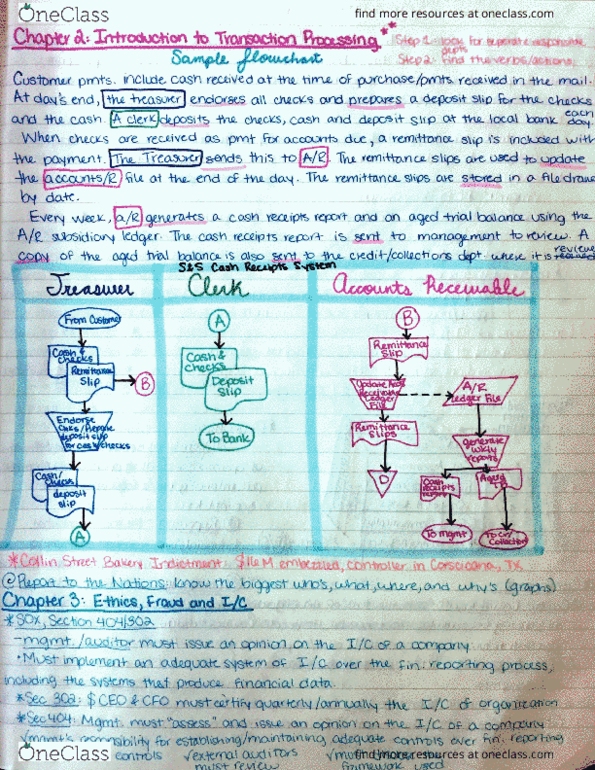 find more resources at oneclass.com
Chapter 2: Introduction to Transaction Processing**
Step 1: look for separate responsible depts
Step 2: find the verbs/actions
Sample flowchart
Customer pmts. include cash received at the time of purchase/pmts received in the mail.
At day's end, the treasurer endorses all checks and prepares a deposit slip for the checks
and the cash. A clerk deposits the checks, cash and deposit slip at the local bank each day.
When checks are received as pmt for accounts due, a remittance slip is included with
the payment. The Treasurer sends this to A/R. The remittance slips are used to update
the accounts/R file at the end of the day. The remittance slips are stored in a file drawer
by date.
Every week, a/R generates a cash receipts report and an aged trial balance using the
A/R subsidiary ledger. The cash receipts report is sent to management to review. A
copy of the aged trial balance is also sent to the credit/collections dept. where it is reviewed
S&S Cash Receipts System
Treasurer
Clerk
Accounts Receivable
From Customer
Cash & checks
Remittance Slip
B
Endorse Chks/Prepare deposit slip for cash/checks
Cash/Checks
deposit slip
A
A
Cash & checks
Deposit Slip
To Bank
B
Remittance Slip
Update Accts Receivable Ledger File
A/R Ledger File
Remittance Slips
D
generate wkly reports
Cash receipts report
Aged TB
To mgmt
To Cr/Collections
*Collin Street Bakery Indictment: $16 M embezzled, controller in Corsicana, TX
@Report to the Nations: know the biggest who's, what, where, and why's (graphs)
Chapter 3: Ethics, Fraud and I/C
*SOX, Section 404/302
-mgmt./auditor must issue an opinion on the I/C of a company
•Must implement an adequate system of I/C over the fin. reporting process,
including the systems that produce financial data.
*Sec 302: $ CEO & CFO must certify quarterly/annually the I/C of organization
*Sec 404: Mgmt. must "assess" and issue an opinion on the I/C of a company
√mgmt's responsibility for establishing/maintaining adequate controls over fin. reporting
controls √external auditors must review
framework used
OneClass
find more resources at oneclass.com